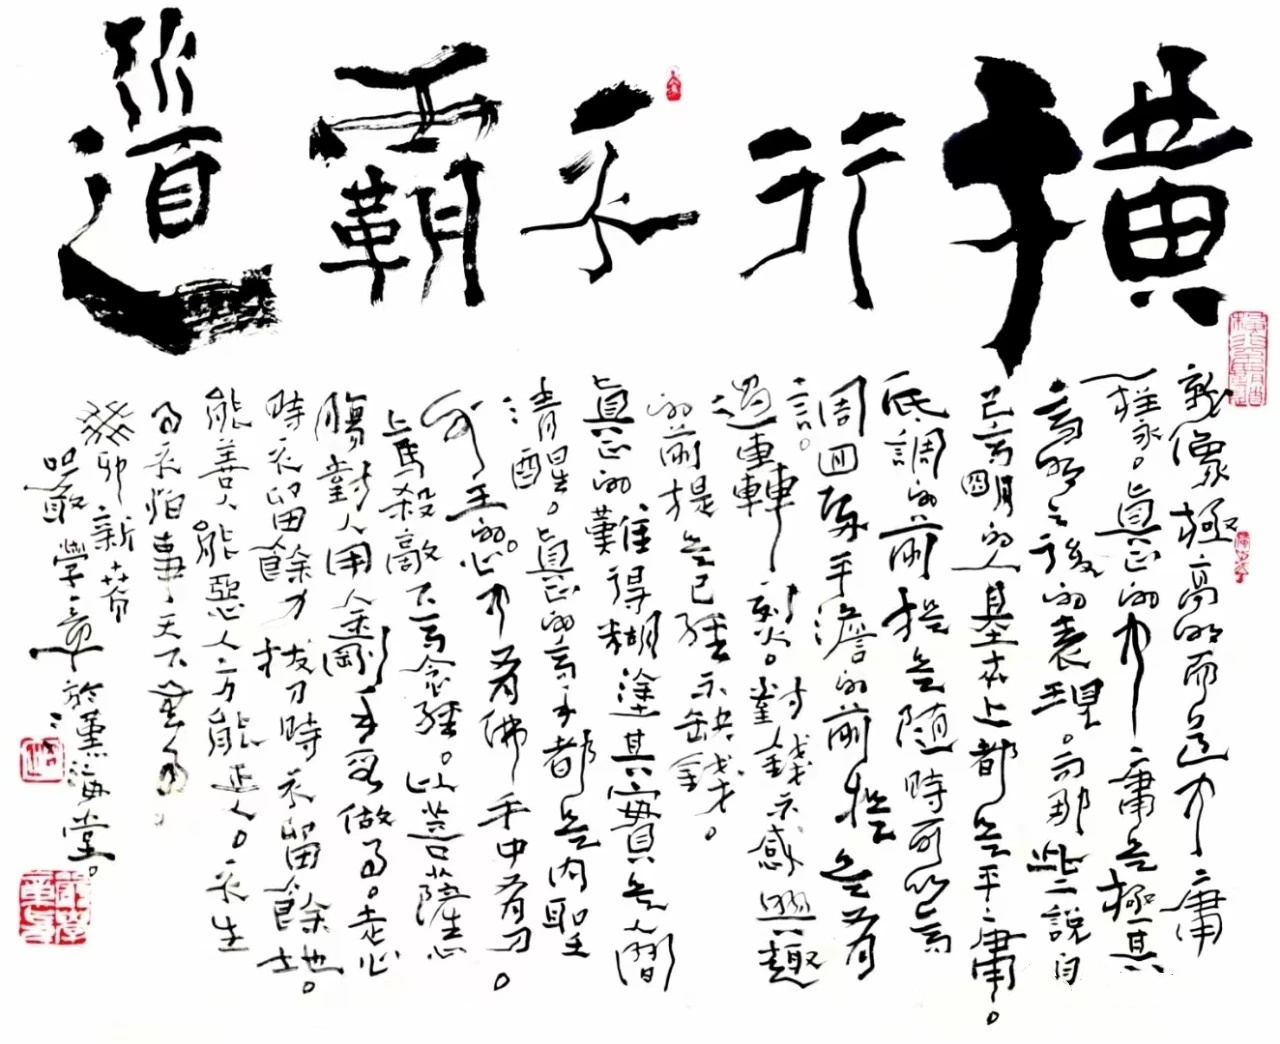 橫行不霸道
就像極高明而道中庸
一樣。真正的中庸是極其
高明之後的表現。而那些說自
己高明的人基本上都是平庸。
低調的前提是隨時可以高
調。回歸平澹的前提是有
過轟轟烈烈。對錢不感興趣
的前提是已經不缺錢。
真正的難得糊塗其實是人間
清醒。真正的高手都是内聖
外王的。心中有佛手中有刀。
上馬殺敵下馬念經。以菩薩心
腸對人用金剛手段做事。走心
時不留餘力拔刀時不留餘地。
能善人能惡人方能正人。不生
事不怕事天下無事。
癸卯新春
嚴學章於薰海堂。